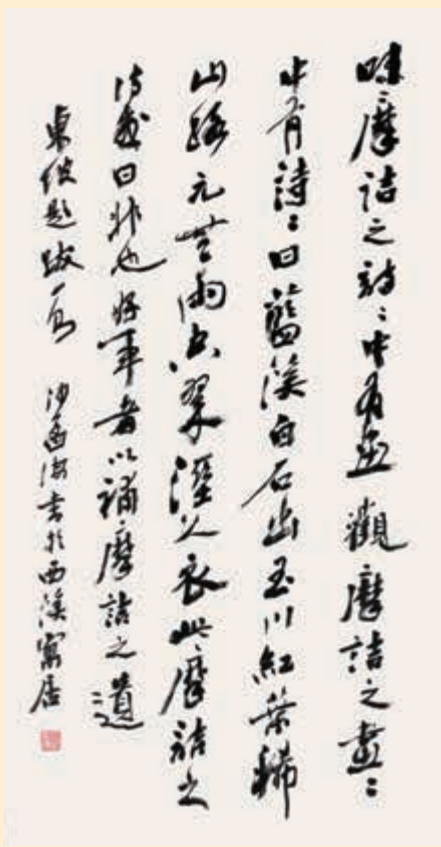 味摩詰之詩〻中有画觀摩詰之畫〻
中有詩〻曰藍溪白石出玉川紅葉稀
山路元無雨空翠濕人衣此摩詰之
詩或曰非也好事者以補摩詰之遺
東坡題跋一 沙 海書於西溪寓居